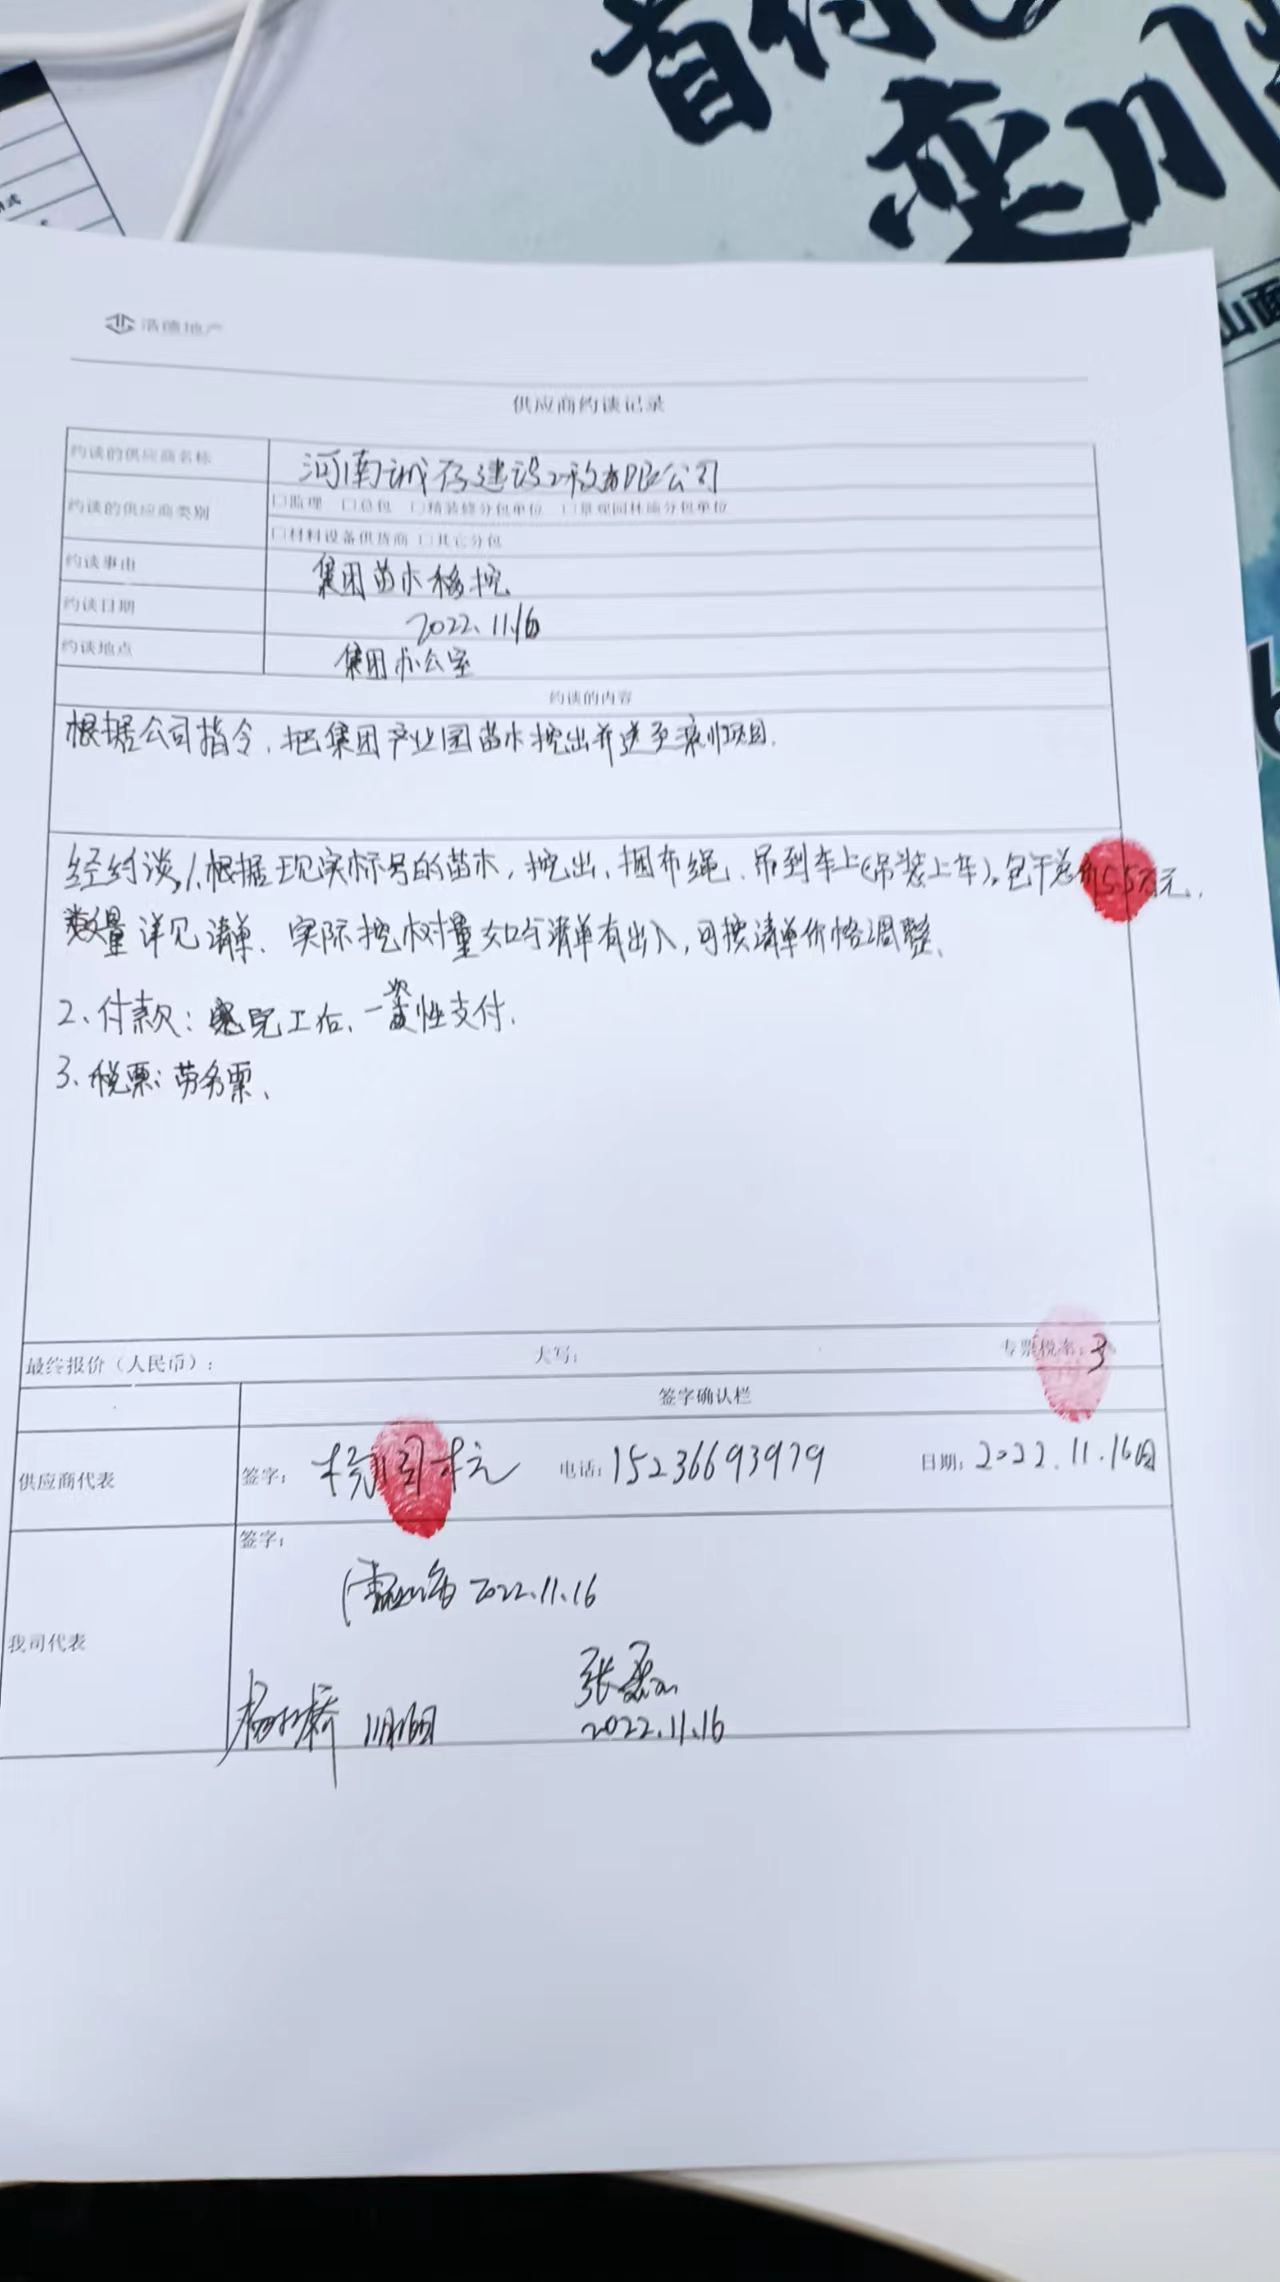 栾川
山
浩德地产
供应商约谈记录
约谈的供应商名称 河南诚存建设工程有限公司
约谈的供应商类别 □监理 □总包 □精装修分包单位 □景观园林施分包单位
□材料设备供货商 □其它分包
约谈事由 集团苗木移挖
约谈日期 2022.11.16
约谈地点 集团办公室
约谈的内容
根据公司指令,把集团产业园苗木挖出并送至栾川项目.
经约谈,1.根据现实标号的苗木,挖出、捆布绳、吊到车上(吊装上车).包干总价5.5万元.
数量详见清单、实际挖树量如与清单有出入,可按清单价格调整、
2、付款:完工后、一次性支付.
3、税票:劳务票、
最终报价(人民币): 大写: 专票税率:3
签字确认栏
供应商代表 签字: 电话:15236693979 日期:2022.11.16日
签字:
2022.11.16
我司代表
张磊
11月16日 2022.11.16